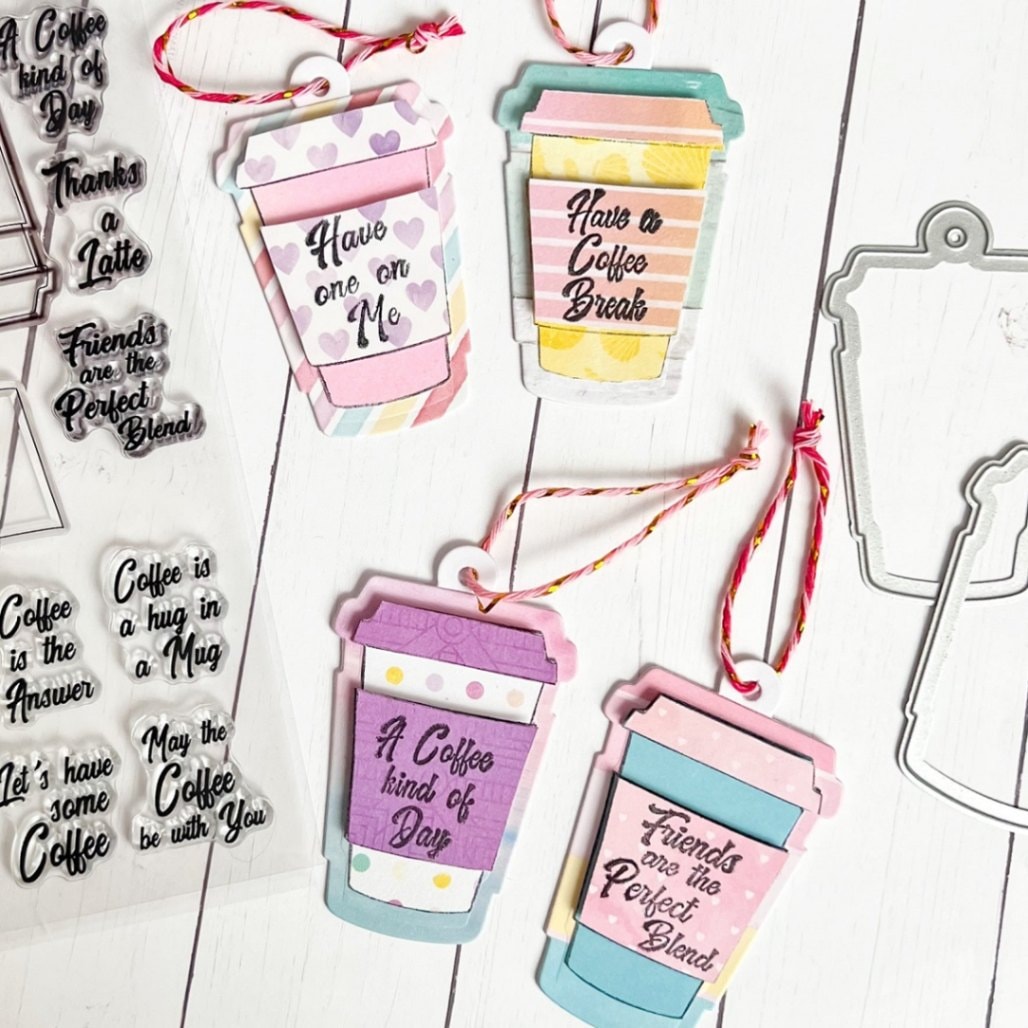 A Coffee
kind of
Day
Thanks
a
Latte
Friends
are the
Perfect
Blend
Coffee is
a hug in
a Mug
Coffee
is the
Answer
May the
Coffee
be with You
Let's have
some
Coffee
Have
one on
Me
Have a
Coffee
Break
A Coffee
kind of
Day
Friends
are the
Perfect
Blend